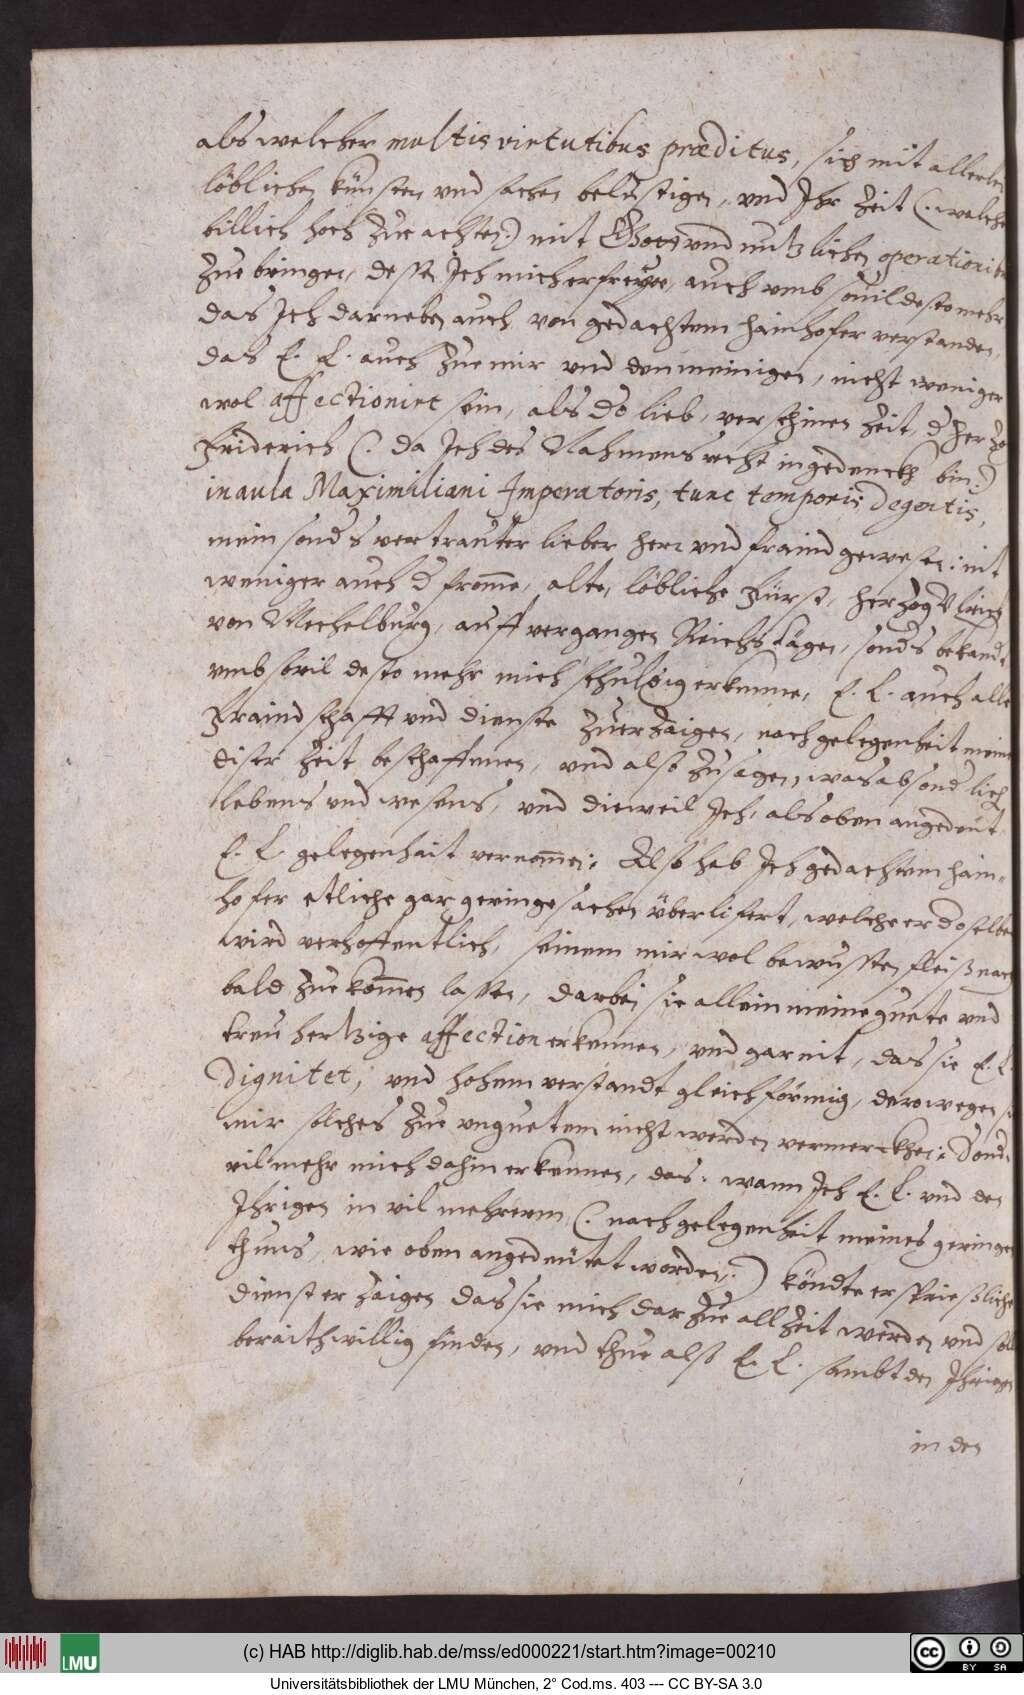 als welcher multis virtutibus præditus, sich mit allerley
löblichen künsten vnd sachen belustigen, vnd Ihr Zeit (: welche
billich hoch Zue achten :) mit vnd nutzlichen operationibus
Zue bringen, dessen Ich mich erfreye, auch vmb souil desto mehr
das Ich darneben auch von gedachtem hainhofer verstanden,
das E. L. auch Zue mir vnd den meinigen, nicht weniger
wol affectioniert sein, als do lieb, verschinen Zeit, d herZog
Friderich (: da Ich des Nahmens recht ingedenckh bin :)
in aula Maximiliani Imperatoris, tunc temporis degentis,
mein sonds vertrauter lieber herr vnd fraind gewesen: nit
weniger auch d fromme, alte, löbliche Fürst, herZog Vlrich
von Mechelburg, auff vergangen Reichstägen, sonds bekandt
vmb sovil desto mehr mich schuldig erkenne, E. L. auch alle
Fraindschafft vnd dienste Zuer Zaigen, nach gelegenheit meiner
diser Zeit beschaffenen, vnd also Zusagen, was absondlich
lebens vnd wesens, vnd dieweil Ich, als oben angedeut
E. L. gelegenhait vernommen: Also hab Ich gedachtem hain-
hofer etliche gar geringe sachen überlifert, welche er doselben
wird verhoffentlich, seinem mir wol bewussten fleiß nach
bald Zue kommen lassen, darbei sie allein meine guete vnd
treu hertzige affection erkennen, vnd gar nit, das sie E. L.
Dignitet, vnd hohem verstandt gleichförmig, derowegen sie
mir solches Zue vnguetem nicht werden vermerckhen: Sond.
vil mehr mich dahin erkennen, das, wann Ich E. L. vnd den
Ihrigen in vil mehrerem (: nach gelegenheit meines geringen
thuns, wie oben angedeütet worden :) köndte ersprießliche
dienst er Zaigen das sie mich dar Zue all Zeit werden vnd sollen
beraithwillig finden, vnd thue also E. L. sambt den Ihrigen
in den
(c) HAB http://diglib.hab.de/mss/ed000221/start.htm?image=00210
LMU
CC BY SA
Universitätsbibliothek der LMU München, 2° Cod.ms. 403 --- CC BY-SA 3.0